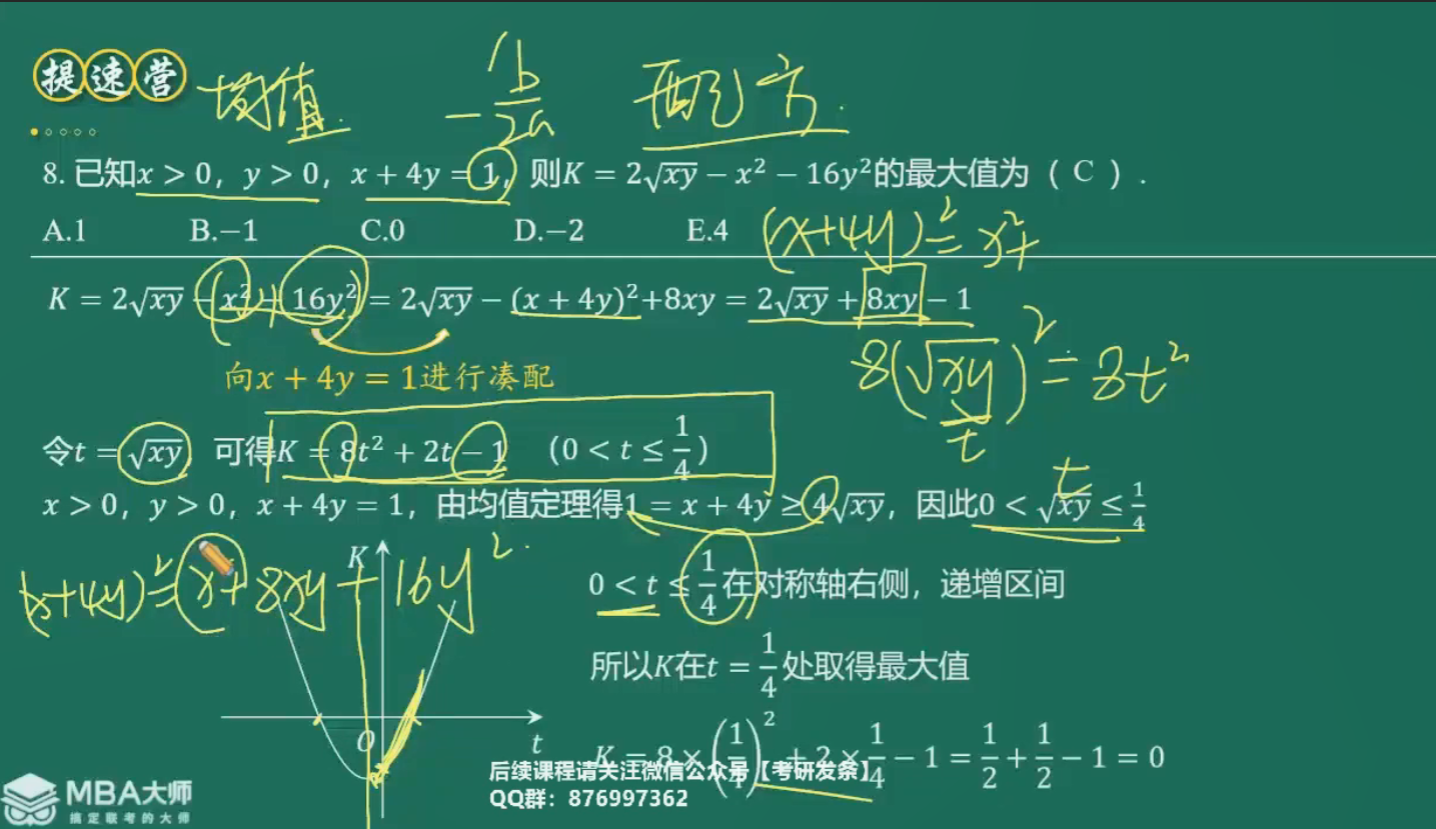 提速营
均值. -b/2a 配方.
8. 已知x > 0，y > 0，x + 4y = 1，则K = 2√xy − x² − 16y²的最大值为（ C ）.
A.1 B.−1 C.0 D.−2 E.4
(x+4y)² = x²+
K = 2√xy − x² − 16y² = 2√xy − (x + 4y)²+8xy = 2√xy + 8xy − 1
8(√xy)² = 8t²
t
向x + 4y = 1进行凑配
令t = √xy 可得K = 8t² + 2t − 1 （0 < t ≤ 1/4）
t
x > 0，y > 0，x + 4y = 1，由均值定理得1 = x + 4y ≥ 4√xy，因此0 < √xy ≤ 1/4
K
(x+4y)² = x²+8xy+16y².
0 < t ≤ 1/4在对称轴右侧，递增区间
所以K在t = 1/4处取得最大值
O t
K = 8 × (1/4)² + 2 × 1/4 − 1 = 1/2 + 1/2 − 1 = 0
后续课程请关注微信公众号【考研发条】
QQ群：876997362
MBA大师
搞定联考的大师